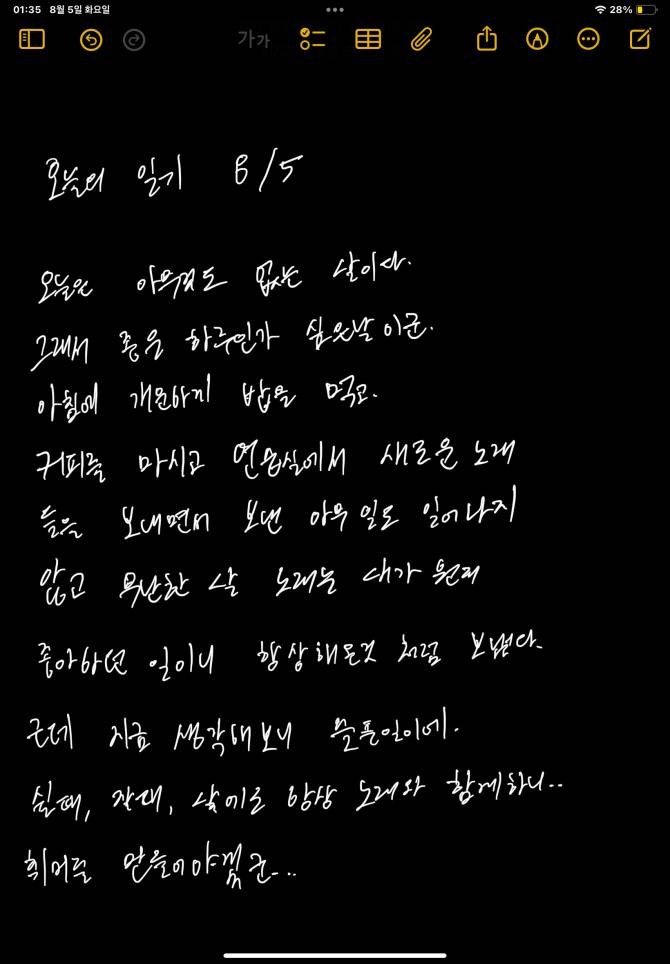 01:35 8월 5일 화요일
28%
가가
오늘의 일기 8/5
오늘은 아무것도 없는 날이다.
그래서 좋은 하루인가 싶은날이군.
아침에 개운하게 밥을 먹고.
커피를 마시고 연습실에서 새로운 노래
들을 보내면서 보낸 아무 일도 일어나지
않고 무난한 날 노래는 내가 원래
좋아하던 일이니 항상해온것 처럼 보냈다.
근데 지금 생각해보니 슬픈일이네.
쉴때, 잘때, 날이로 항상 노래와 함께하니..
취미를 만들어야겠군...